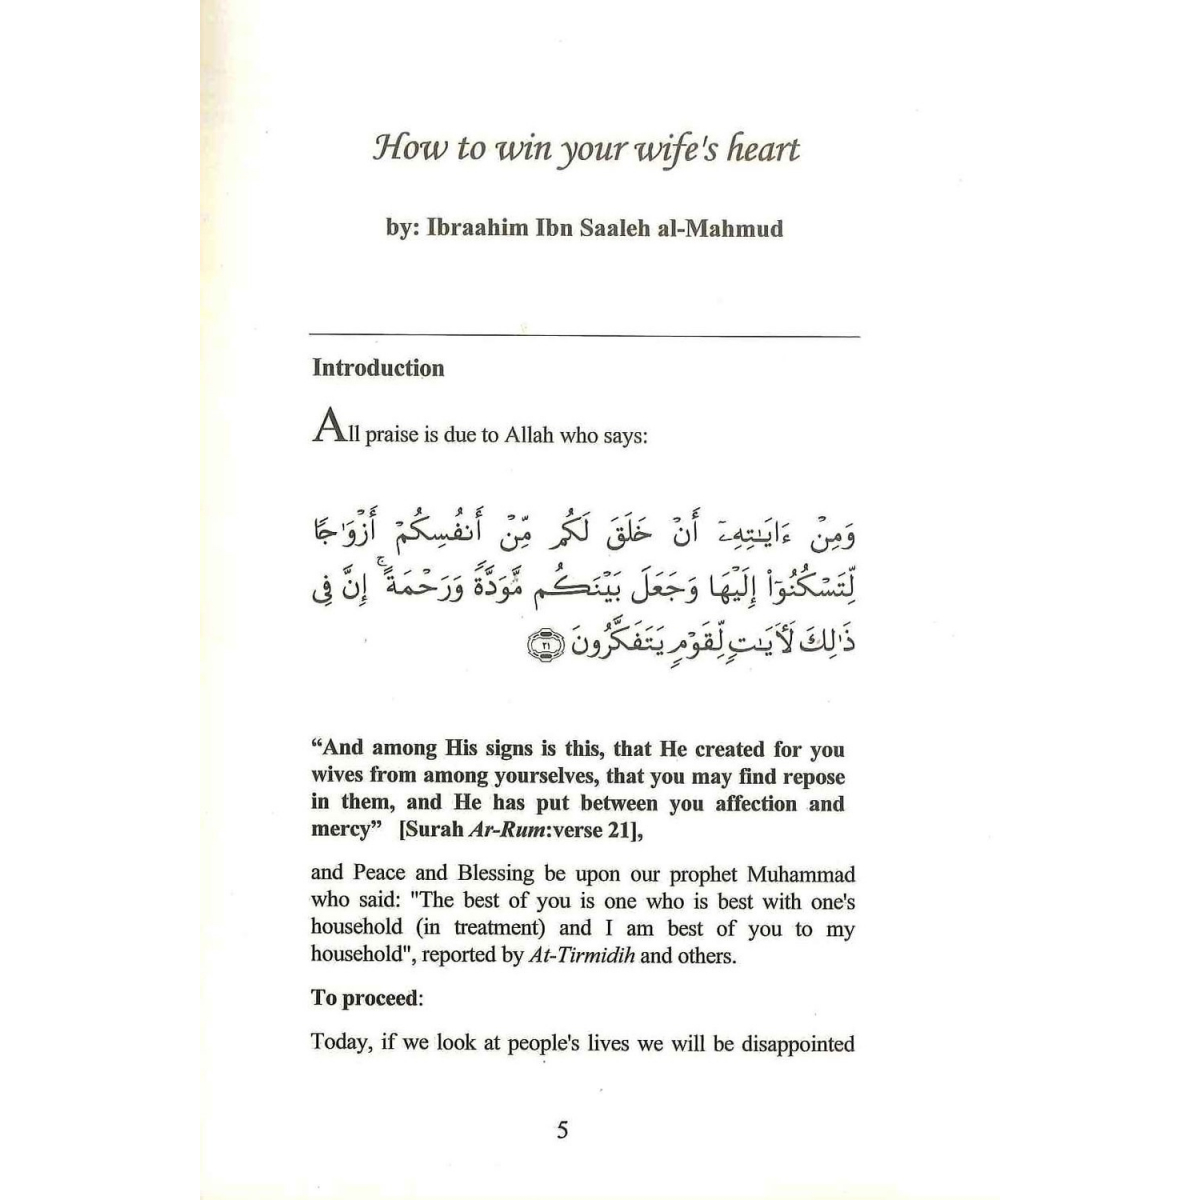 How to win your wife's heart
by: Ibraahim Ibn Saaleh al-Mahmud
Introduction
All praise is due to Allah who says:
وَمِنْ ءَايَـٰتِهِۦٓ أَنْ خَلَقَ لَكُم مِّنْ أَنفُسِكُمْ أَزْوَٰجًا
لِّتَسْكُنُوٓا۟ إِلَيْهَا وَجَعَلَ بَيْنَكُم مَّوَدَّةً وَرَحْمَةً ۚ إِنَّ فِى
ذَٰلِكَ لَـَٔايَـٰتٍ لِّقَوْمٍ يَتَفَكَّرُونَ ٢١
“And among His signs is this, that He created for you
wives from among yourselves, that you may find repose
in them, and He has put between you affection and
mercy” [Surah Ar-Rum:verse 21],
and Peace and Blessing be upon our prophet Muhammad
who said: "The best of you is one who is best with one's
household (in treatment) and I am best of you to my
household", reported by At-Tirmidih and others.
To proceed:
Today, if we look at people's lives we will be disappointed
5